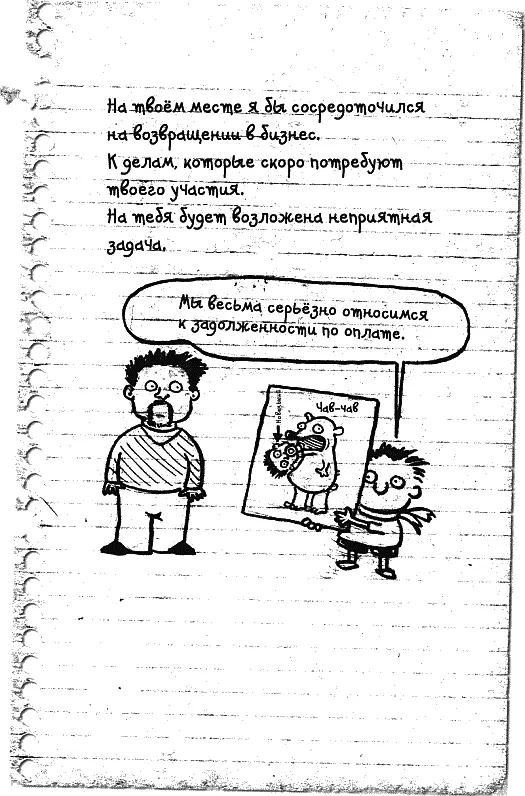 На твоём месте я бы сосредоточился
на возвращении в бизнес.
К делам, которые скоро потребуют
твоего участия.
На тебя будет возложена неприятная
задача.
Мы весьма серьёзно относимся
к задолженности по оплате.
Чав-чав